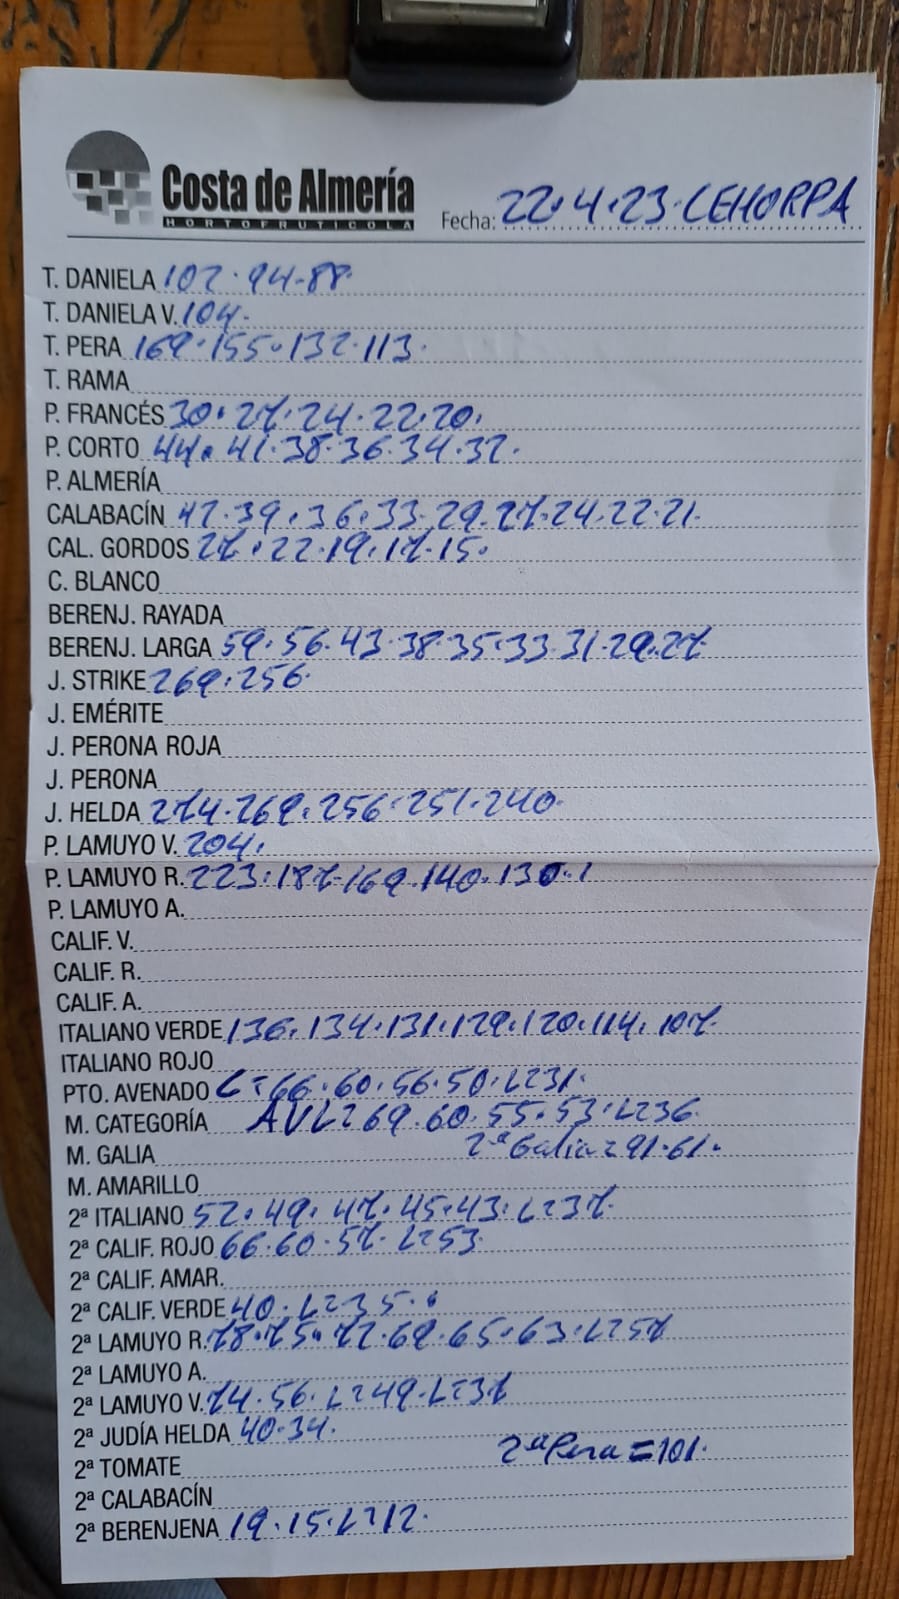 Costa de Almería
HORTOFRUTICOLA
Fecha: 22.4.23.CEHORPA
T. DANIELA 102.94.88.
T. DANIELA V. 104.
T. PERA 169.155.132.113.
T. RAMA
P. FRANCÉS 30.27.24.22.20.
P. CORTO 44.41.38.36.34.32.
P. ALMERÍA
CALABACÍN 42.39.36.33.29.27.24.22.21.
CAL. GORDOS 27.22.19.17.15.
C. BLANCO
BERENJ. RAYADA
BERENJ. LARGA 59.56.43.38.35.33.31.29.27.
J. STRIKE 269.256.
J. EMÉRITE
J. PERONA ROJA
J. PERONA
J. HELDA 274.269.256.251.240.
P. LAMUYO V. 204.
P. LAMUYO R. 223.187.169.140.130.
P. LAMUYO A.
CALIF. V.
CALIF. R.
CALIF. A.
ITALIANO VERDE 136.134.131.129.120.114.107.
ITALIANO ROJO
PTO. AVENADO C=66.60.56.50.L=31.
M. CATEGORÍA AVL=69.60.55.53.L=36.
M. GALIA 2ª Galia=91.61.
M. AMARILLO
2ª ITALIANO 52.49.47.45.43.L=37.
2ª CALIF. ROJO 66.60.57.L=53.
2ª CALIF. AMAR.
2ª CALIF. VERDE 40.L=35.
2ª LAMUYO R. 78.75.72.69.65.63.L=57.
2ª LAMUYO A.
2ª LAMUYO V. 74.56.L=49.L=37.
2ª JUDÍA HELDA 40.34.
2ª TOMATE 2ªPera=101.
2ª CALABACÍN
2ª BERENJENA 19.15.L=12.